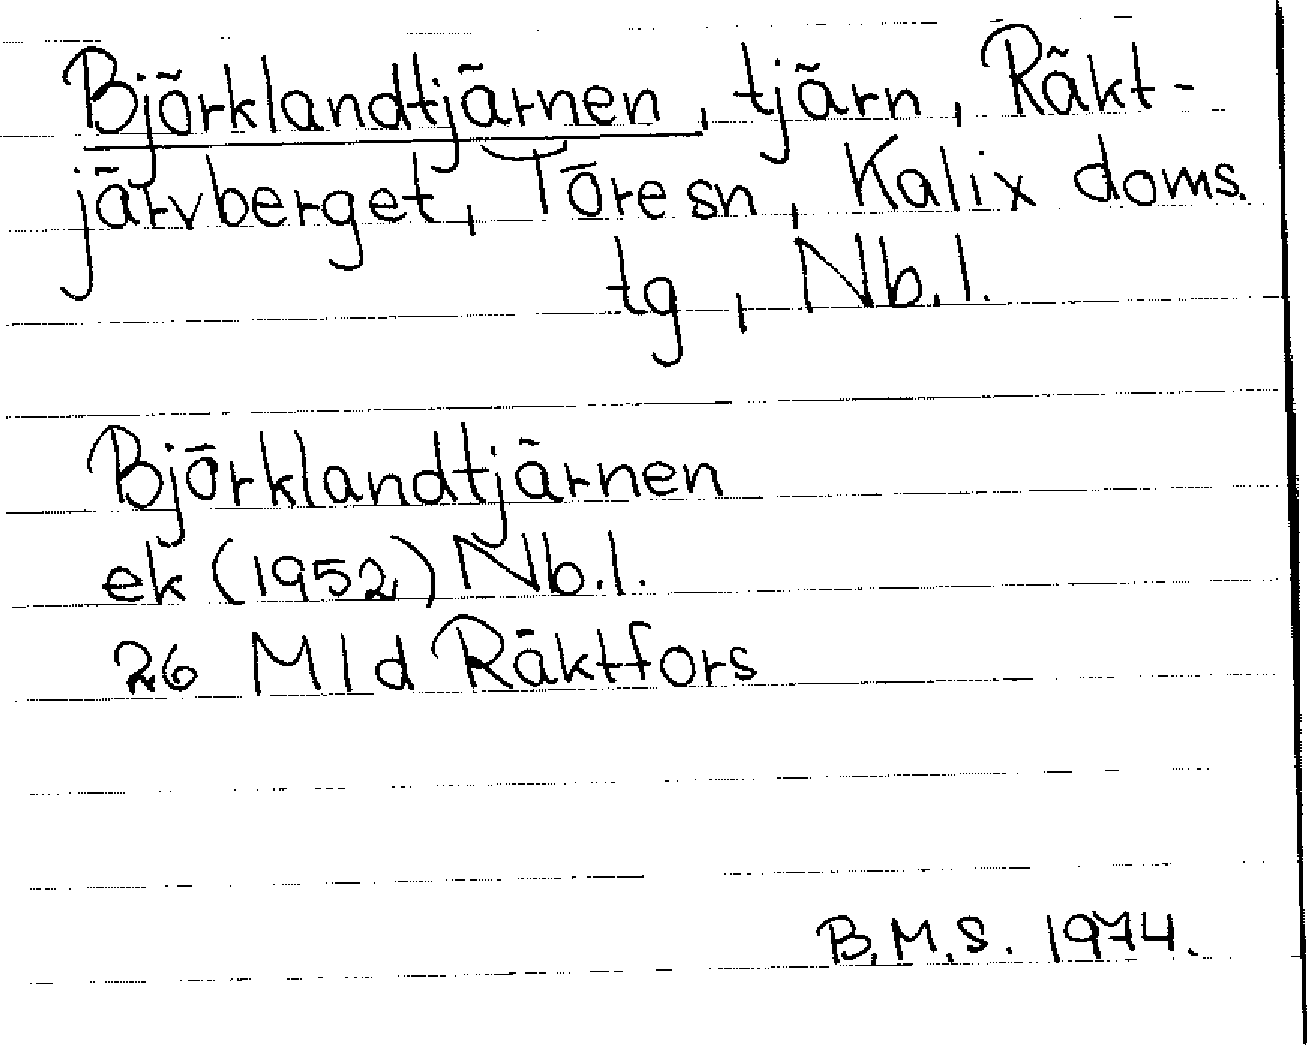 Björklandtjärnen, tjärn, Räkt-
järvberget, Töre sn, Kalix doms.
tg, Nb.l.
Björklandtjärnen
ek (1952) Nb.l.
26 M 1 d Räktfors
B.M.S. 1974.